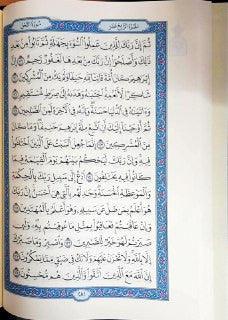 سُورَةُ النَّحْلِ
الجُزْءُ الرَّابِعَ عَشَرَ
ثُمَّ إِنَّ رَبَّكَ لِلَّذِينَ عَمِلُوا۟ ٱلسُّوٓءَ بِجَهَٰلَةٍ ثُمَّ تَابُوا۟ مِنۢ بَعْدِ
ذَٰلِكَ وَأَصْلَحُوٓا۟ إِنَّ رَبَّكَ مِنۢ بَعْدِهَا لَغَفُورٌ رَّحِيمٌ ١١٩ إِنَّ
إِبْرَٰهِيمَ كَانَ أُمَّةً قَانِتًا لِّلَّهِ حَنِيفًا وَلَمْ يَكُ مِنَ ٱلْمُشْرِكِينَ ١٢٠
شَاكِرًا لِّأَنْعُمِهِ ٱجْتَبَىٰهُ وَهَدَىٰهُ إِلَىٰ صِرَٰطٍ مُّسْتَقِيمٍ ١٢١
وَءَاتَيْنَٰهُ فِى ٱلدُّنْيَا حَسَنَةً وَإِنَّهُۥ فِى ٱلْءَاخِرَةِ لَمِنَ ٱلصَّٰلِحِينَ ١٢٢
ثُمَّ أَوْحَيْنَآ إِلَيْكَ أَنِ ٱتَّبِعْ مِلَّةَ إِبْرَٰهِيمَ حَنِيفًا وَمَا كَانَ
مِنَ ٱلْمُشْرِكِينَ ١٢٣ إِنَّمَا جُعِلَ ٱلسَّبْتُ عَلَى ٱلَّذِينَ ٱخْتَلَفُوا۟
فِيهِ وَإِنَّ رَبَّكَ لَيَحْكُمُ بَيْنَهُمْ يَوْمَ ٱلْقِيَٰمَةِ فِيمَا
كَانُوا۟ فِيهِ يَخْتَلِفُونَ ١٢٤ ٱدْعُ إِلَىٰ سَبِيلِ رَبِّكَ بِٱلْحِكْمَةِ
وَٱلْمَوْعِظَةِ ٱلْحَسَنَةِ وَجَٰدِلْهُم بِٱلَّتِى هِىَ أَحْسَنُ إِنَّ رَبَّكَ
هُوَ أَعْلَمُ بِمَن ضَلَّ عَن سَبِيلِهِۦ وَهُوَ أَعْلَمُ بِٱلْمُهْتَدِينَ ١٢٥
وَإِنْ عَاقَبْتُمْ فَعَاقِبُوا۟ بِمِثْلِ مَا عُوقِبْتُم بِهِۦ وَلَئِن
صَبَرْتُمْ لَهُوَ خَيْرٌ لِّلصَّٰبِرِينَ ١٢٦ وَٱصْبِرْ وَمَا صَبْرُكَ
إِلَّا بِٱللَّهِ وَلَا تَحْزَنْ عَلَيْهِمْ وَلَا تَكُ فِى ضَيْقٍ مِّمَّا يَمْكُرُونَ ١٢٧
إِنَّ ٱللَّهَ مَعَ ٱلَّذِينَ ٱتَّقَوا۟ وَّٱلَّذِينَ هُم مُّحْسِنُونَ ١٢٨
٢٨١